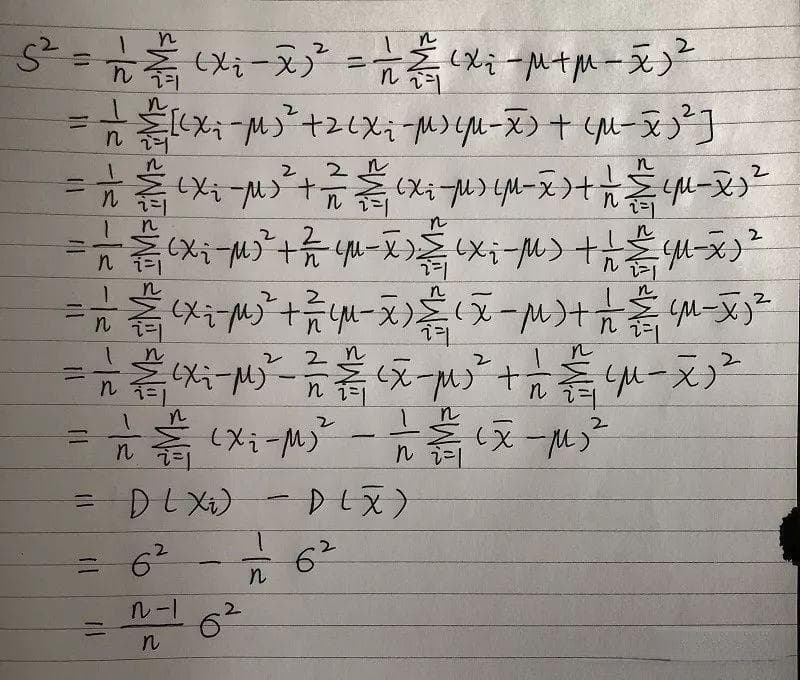 S² = \frac{1}{n} \sum_{i=1}^{n} (x_i - \bar{x})² = \frac{1}{n} \sum_{i=1}^{n} (x_i - μ + μ - \bar{x})²
= \frac{1}{n} \sum_{i=1}^{n} [(x_i - μ)² + 2(x_i - μ)(μ - \bar{x}) + (μ - \bar{x})²]
= \frac{1}{n} \sum_{i=1}^{n} (x_i - μ)² + \frac{2}{n} \sum_{i=1}^{n} (x_i - μ)(μ - \bar{x}) + \frac{1}{n} \sum_{i=1}^{n} (μ - \bar{x})²
= \frac{1}{n} \sum_{i=1}^{n} (x_i - μ)² + \frac{2}{n} (μ - \bar{x}) \sum_{i=1}^{n} (x_i - μ) + \frac{1}{n} \sum_{i=1}^{n} (μ - \bar{x})²
= \frac{1}{n} \sum_{i=1}^{n} (x_i - μ)² + \frac{2}{n} (μ - \bar{x}) \sum_{i=1}^{n} (\bar{x} - μ) + \frac{1}{n} \sum_{i=1}^{n} (μ - \bar{x})²
= \frac{1}{n} \sum_{i=1}^{n} (x_i - μ)² - \frac{2}{n} \sum_{i=1}^{n} (\bar{x} - μ)² + \frac{1}{n} \sum_{i=1}^{n} (μ - \bar{x})²
= \frac{1}{n} \sum_{i=1}^{n} (x_i - μ)² - \frac{1}{n} \sum_{i=1}^{n} (\bar{x} - μ)²
= D(x_i) - D(\bar{x})
= σ² - \frac{1}{n} σ²
= \frac{n-1}{n} σ²